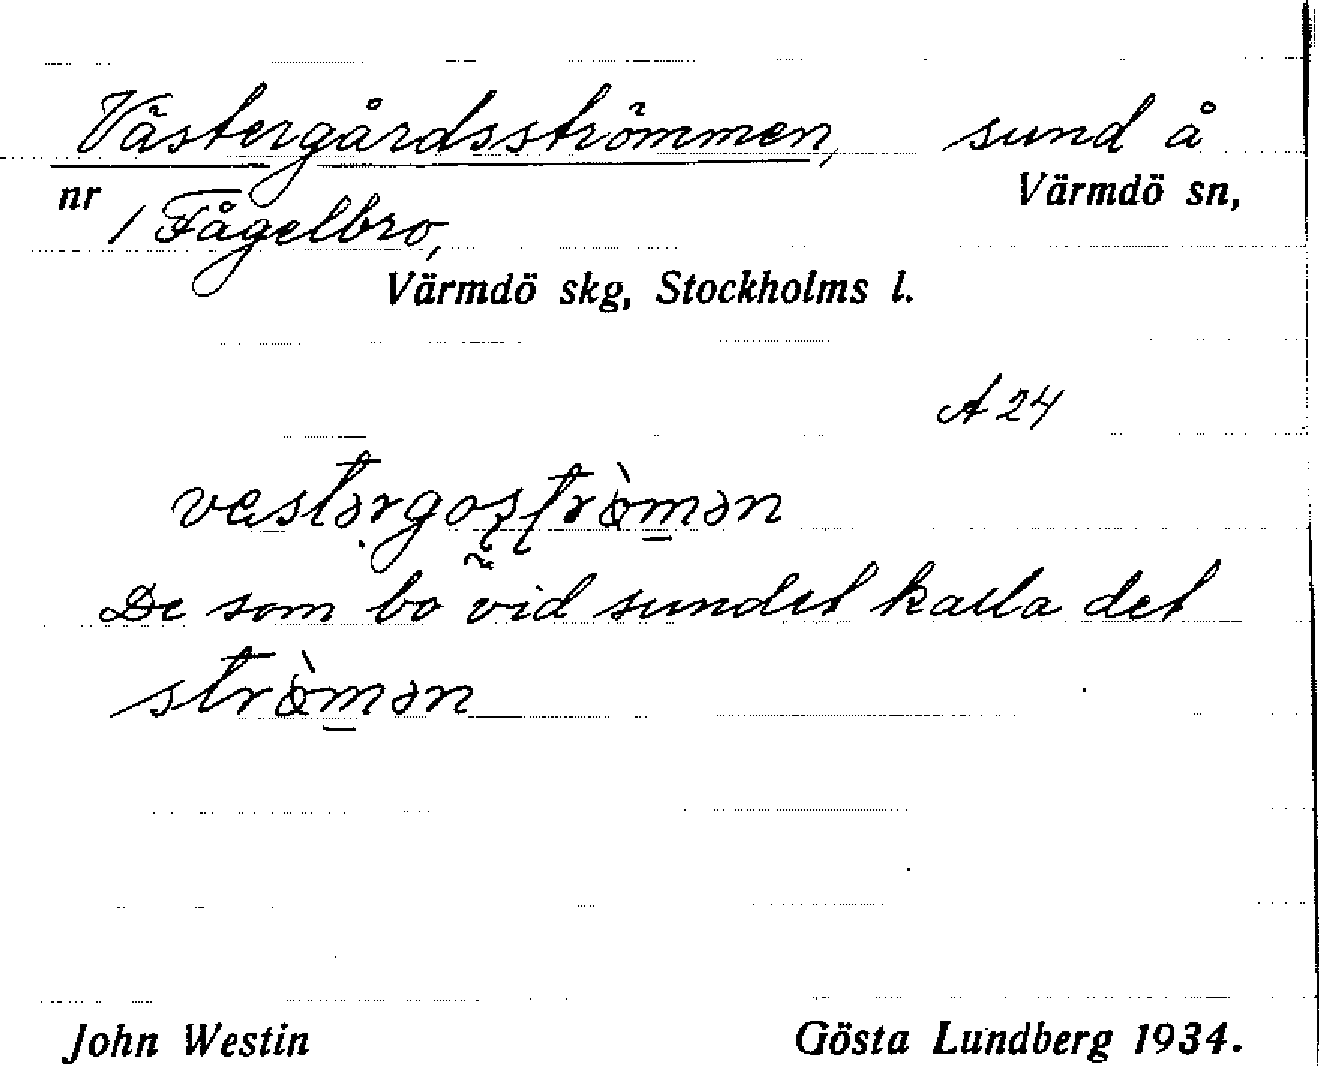 Västergårdsströmmen, sund å
nr 1 Fågelbro, Värmdö sn,
Värmdö skg, Stockholms l.
A 24
De som bo vid sundet kalla det
strö̀mən
John Westin Gösta Lundberg 1934.